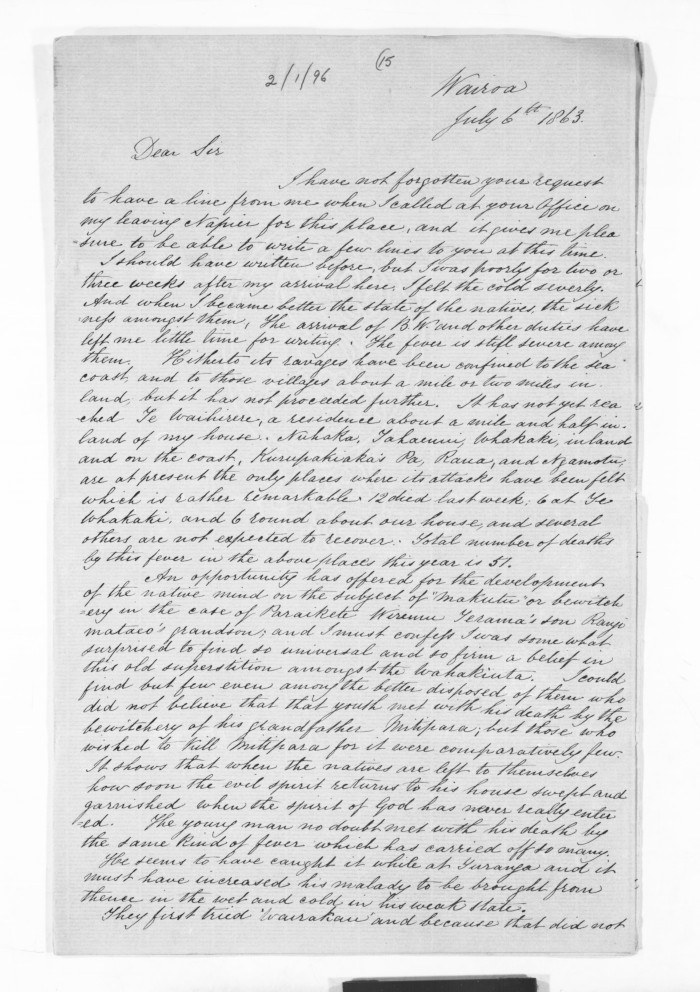 2/1/96
15
Wairoa
July 6th 1863.
Dear Sir
I have not forgotten your request
to have a line from me when I called at your Office on
my leaving Napier for this place, and it gives me plea
-sure to be able to write a few lines to you at this time.
I should have written before, but I was poorly for two or
three weeks after my arrival here, I felt the cold severly.
And when I became better the state of the natives, the sick
-ness amongst them, the arrival of B.W. and other duties have
left me little time for writing. The fever is still severe among
them. Hitherto its ravages have been confined to the sea
coast, and to those villages about a mile or two miles in
land, but it has not proceeded further. It has not yet rea
ched Te Waihirere, a residence about a mile and half in-
land of my house. Nuhaka, Tahaenui, Whakaki, inland
and on the coast, Kurupakiaka's Pa, Raua, and Ngamotu,
are at present the only places where its attacks have been felt
which is rather remarkable. 12 died last week; 6 at Te
Whakaki, and 6 round about our house, and several
others are not expected to recover. Total number of deaths
by this fever in the above places this year is 51.
An opportunity has offered for the development
of the native mind on the subject of "makutu" or bewitch
-ery in the case of Paraikete Wiremu Terama's son Rangi
mataeo's grandson; and I must confess I was some what
surprised to find so universal and so firm a belief in
this old superstition amongst the Wahakiuta. I could
find but few even among the better disposed of them who
did not believe that that youth met with his death by the
bewitchery of his grandfather Mitipara; but those who
wished to kill Mitipara for it were comparatively few.
It shows that when the natives are left to themselves
how soon the evil spirit returns to his house swept and
garnished when the spirit of God has never really enter
-ed. The young man no doubt met with his death by
the same kind of fever which has carried off so many.
He seems to have caught it while at Turanga and it
must have increased his malady to be brought from
thence in the wet and cold in his weak state.
They first tried 'Wairakau' and because that did not